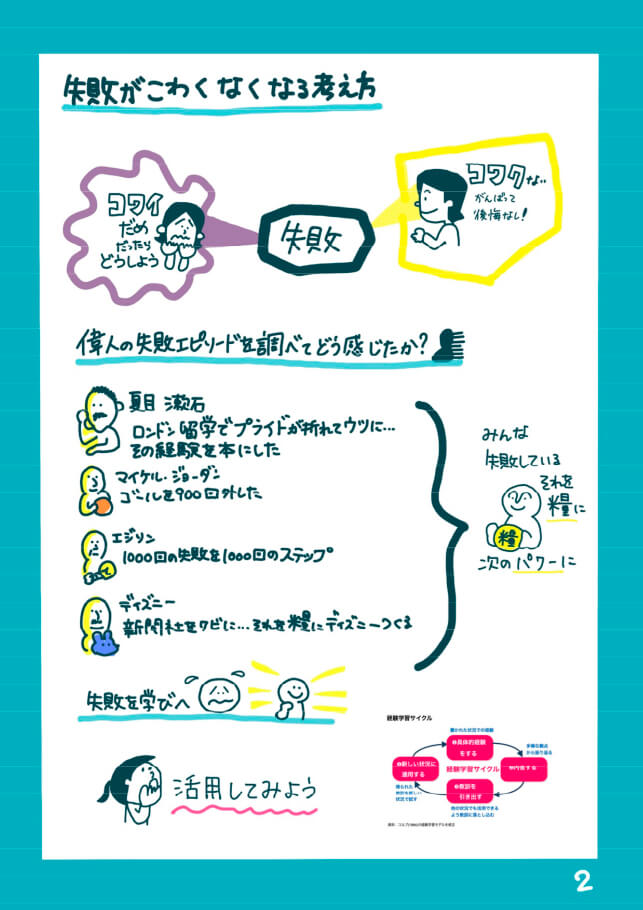 失敗がこわくなくなる考え方
コワイ
だめ
だったら
どうしよう
失敗
コワクな..
がんばって
後悔なし!
偉人の失敗エピソードを調べてどう感じたか?
夏目漱石
ロンドン留学でプライドが折れてウツに...
その経験を本にした
マイケル・ジョーダン
ゴールを900回外した
エジソン
1000回の失敗を1000回のステップ
ディズニー
新聞社をクビに...それを糧にディズニーつくる
みんな
失敗している
それを
糧に
糧
次のパワーに
失敗を学びへ
活用してみよう
経験学習サイクル
置かれた状況での経験
❶具体的経験
をする
多様な観点
から振り返る
❹新しい状況に
適用する
経験学習サイクル
❸教訓を
引き出す
得られた
状況で試す
他の状況でも活用できる
よう教訓に落とし込む
2